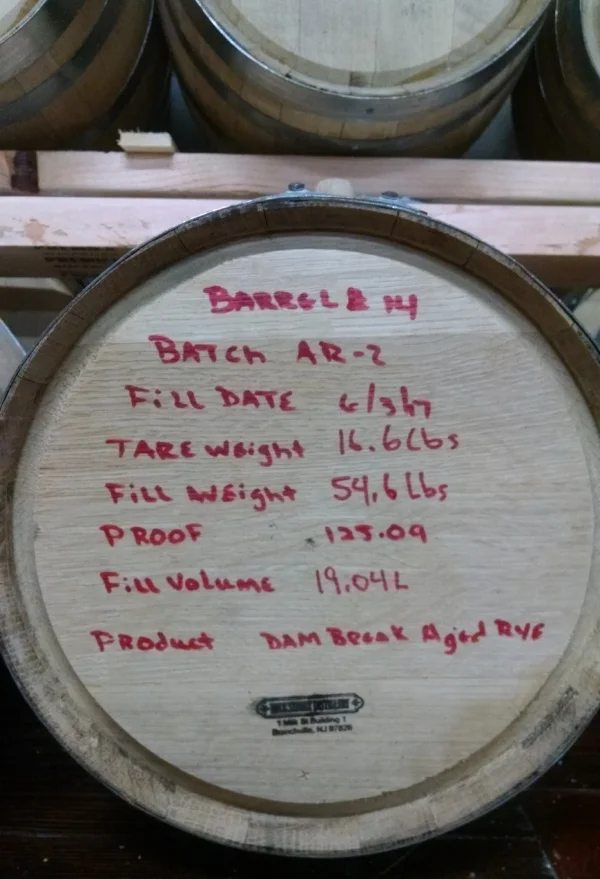 BARREL # 14
BATCH AR-2
Fill DATE 6/3/17
TARE Weight 16.6 lbs
Fill WEight 54.6 lbs
PROOF 125.09
Fill Volume 19.04L
Product DAM BREAK Aged RYE
1 Milk St Building 1
Branchville, NJ 07826